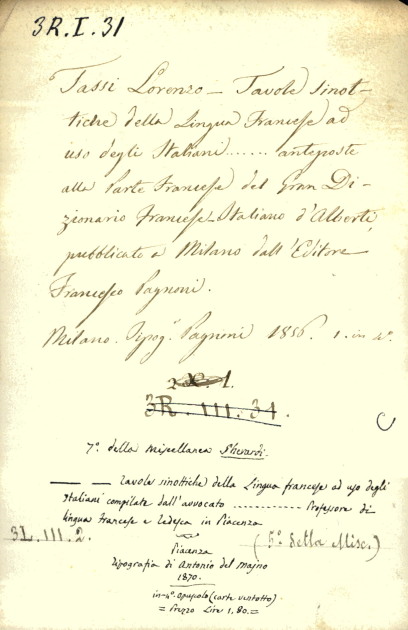 3R.I.31
Tassi Lorenzo — Tavole sinot-
tiche della Lingua Francese ad
uso degli Italiani ....... anteposte
alla Parte Francese del Gran Di-
zionario Francese-Italiano d'Alberti,
pubblicato a Milano dall'Editore
Francesco Pagnoni.
Milano. Tipog. Pagnoni 1856. 1. in 4°.
3R.III.34.
7°. della miscellanea Gherardi.
— — Tavole sinottiche della Lingua francese ad uso degli
Italiani compilate dall'avvocato ............ Professore di
lingua Francese e Tedesca in Piacenza
3L.III.2.
(5°. della Misc.)
Piacenza
Tipografia di Antonio del Majno
1870.
in-4°. Opuscolo (carte ventotto)
= Prezzo Lire 1,80. =